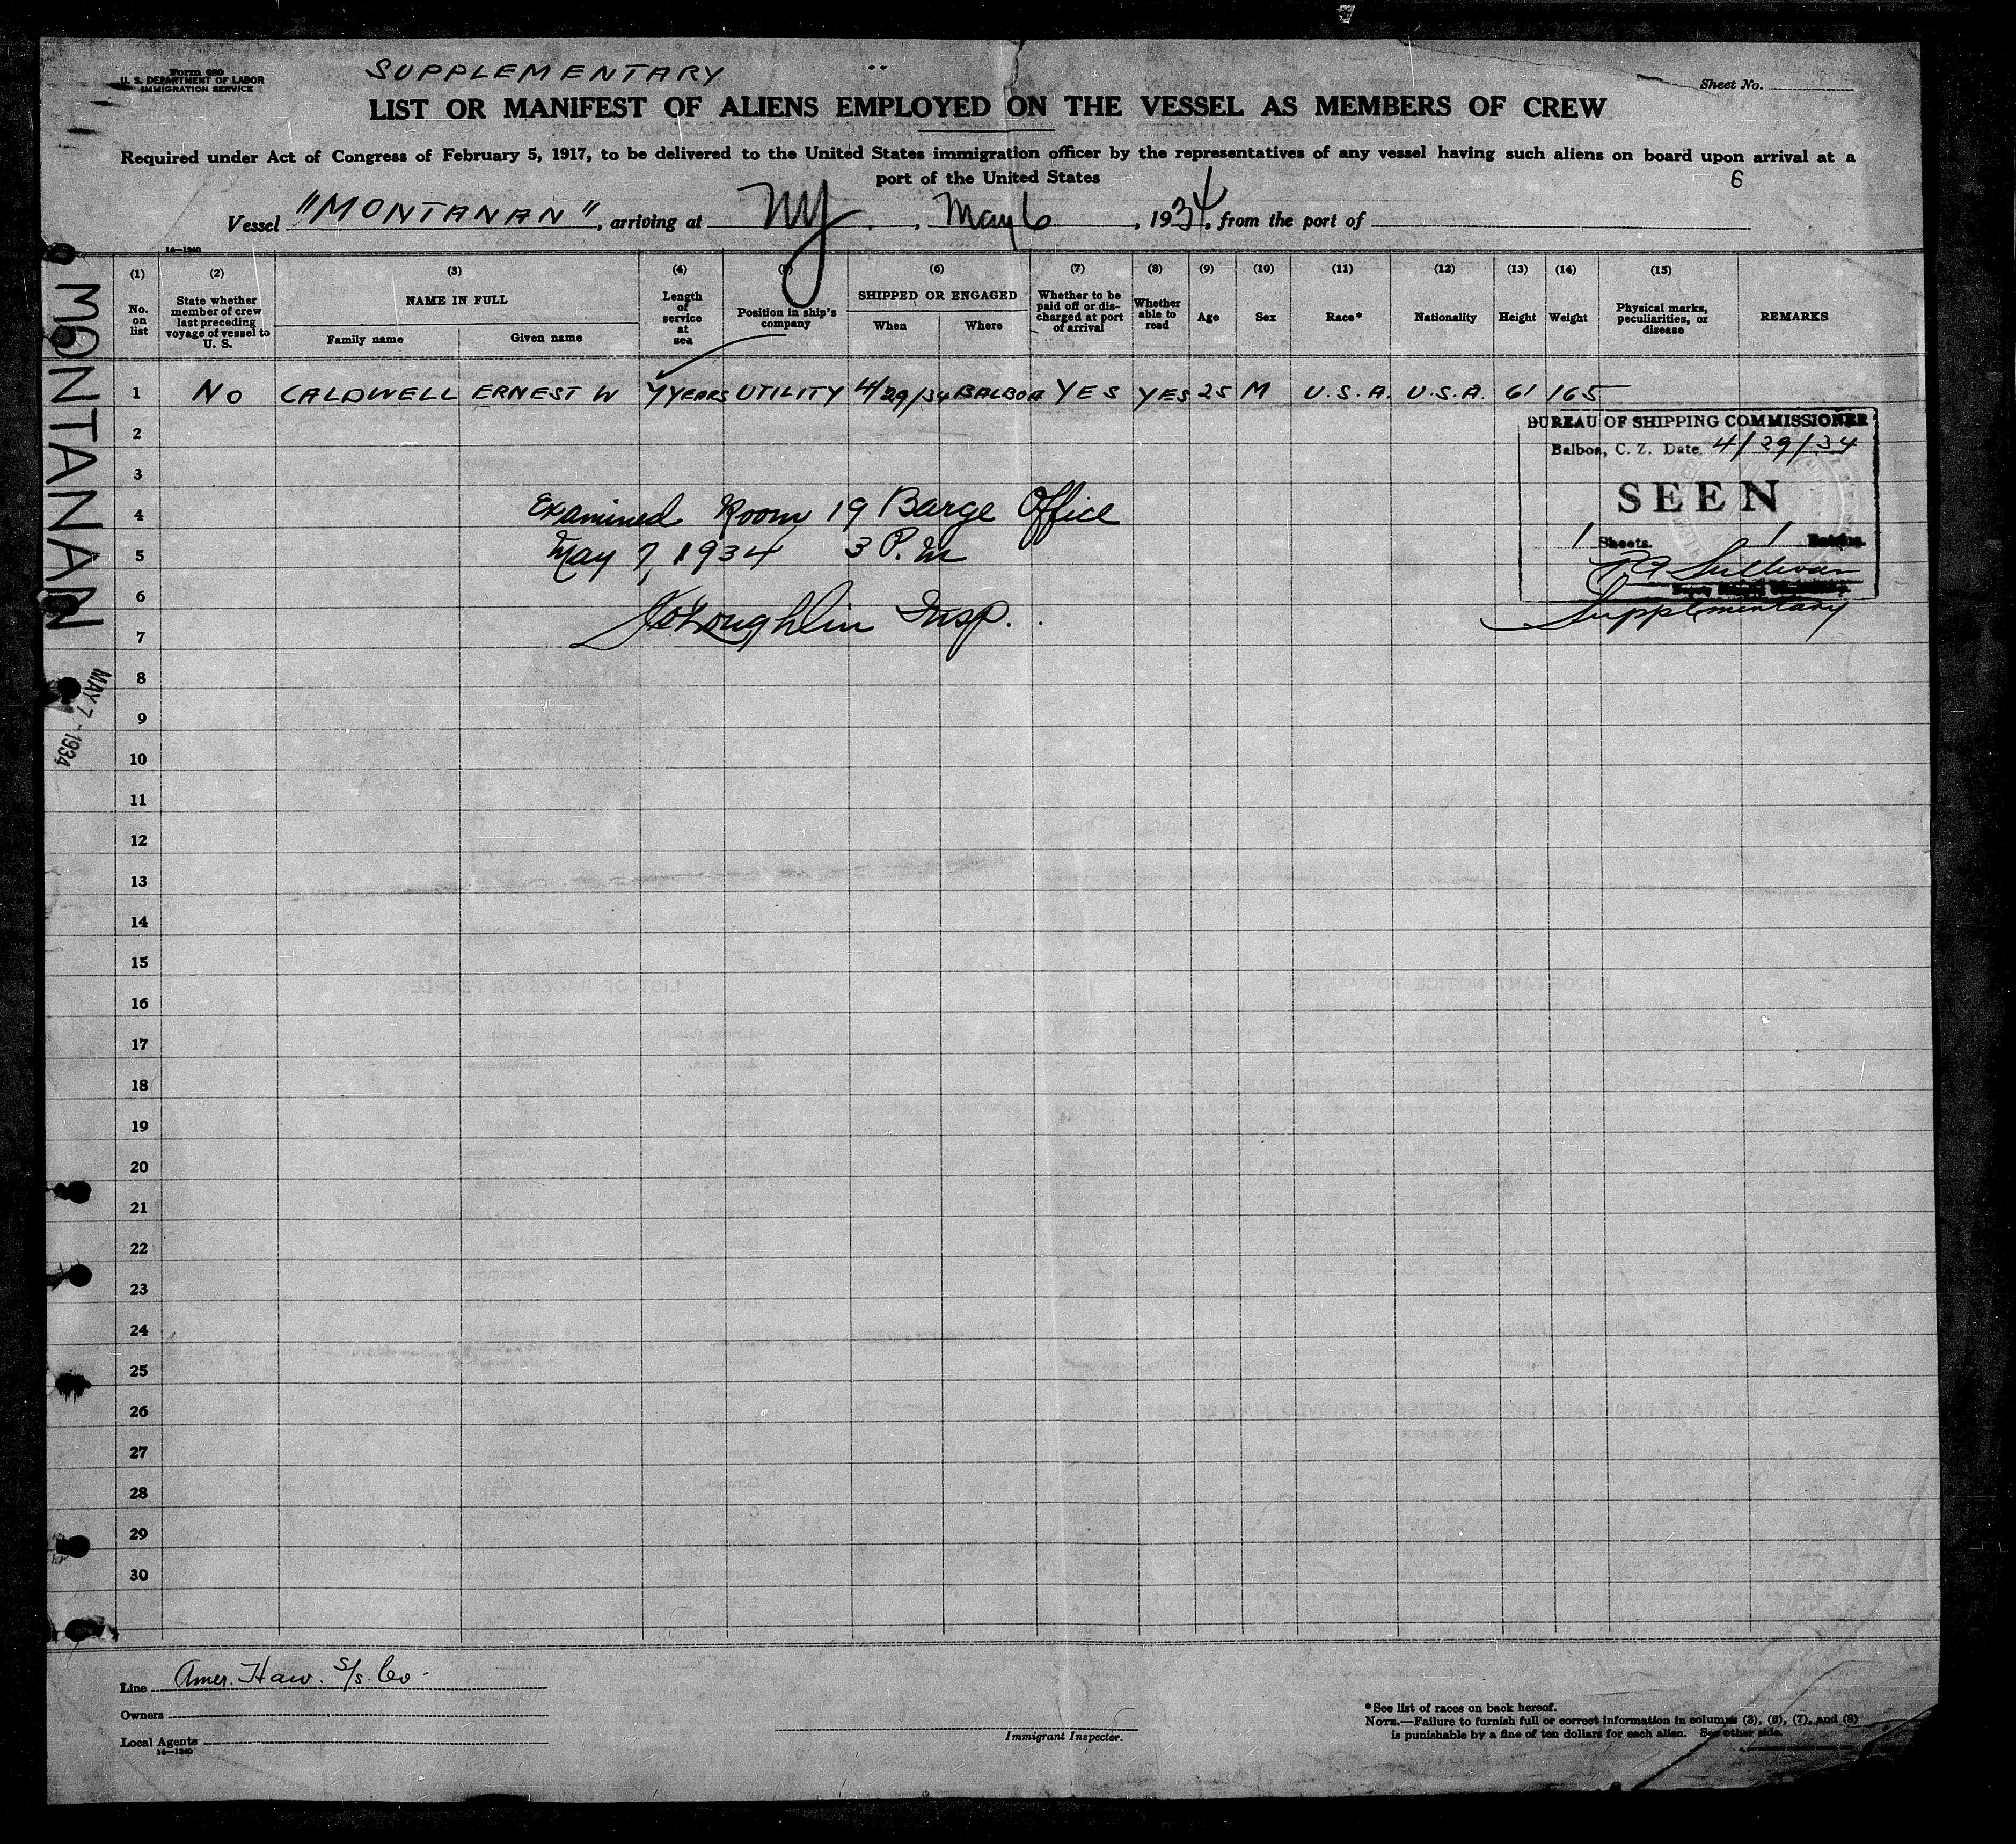 Form 680
U. S. DEPARTMENT OF LABOR
IMMIGRATION SERVICE
SUPPLEMENTARY
Sheet No.
LIST OR MANIFEST OF ALIENS EMPLOYED ON THE VESSEL AS MEMBERS OF CREW
Required under Act of Congress of February 5, 1917, to be delivered to the United States immigration officer by the representatives of any vessel having such aliens on board upon arrival at a
port of the United States
6
Vessel "MONTANAN", arriving at NY, May 6, 1934, from the port of
14—1240
(1) (2) (3) (4) (5) (6) (7) (8) (9) (10) (11) (12) (13) (14) (15)
No. on list
State whether member of crew last preceding voyage of vessel to U. S.
NAME IN FULL
Family name
Given name
Length of service at sea
Position in ship's company
SHIPPED OR ENGAGED
When
Where
Whether to be paid off or discharged at port of arrival
Whether able to read
Age
Sex
Race*
Nationality
Height
Weight
Physical marks, peculiarities, or disease
REMARKS
1 NO CALDWELL ERNEST W 7 YEARS UTILITY 4/29/34 BALBOA YES YES 25 M U.S.A. U.S.A. 6' 165
BUREAU OF SHIPPING COMMISSIONER
Balboa, C. Z. Date 4/29/34
SEEN
1 Sheets. 1
Sullivan
Supplementary
2
3
4 Examined Room 19 Barge Office
5 May 7, 1934 3 P.M
6
7 Insp.
8
9
10
11
12
13
14
15
16
17
18
19
20
21
22
23
24
25
26
27
28
29
30
MONTANAN
MAY 7 - 1934
Line Amer. Haw. S/S. Co.
Owners
Local Agents
14—1240
Immigrant Inspector.
*See list of races on back hereof.
NOTE.—Failure to furnish full or correct information in columns (3), (6), (7), and (8)
is punishable by a fine of ten dollars for each alien. See other side.